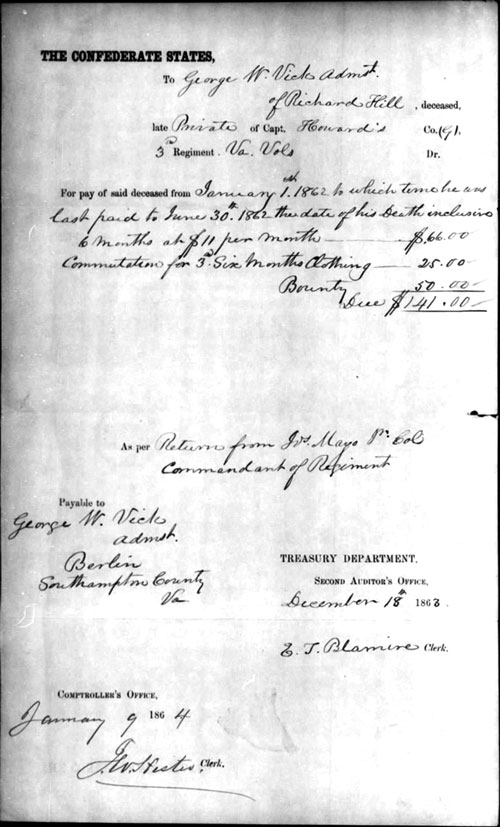 THE CONFEDERATE STATES,
To George W. Vick Admst.
of Richard Hill, deceased,
late Private of Capt. Howard's Co. (G),
3d Regiment. Va. Vols Dr.
For pay of said deceased from January 1st. 1862 to which time he was
last paid to June 30th. 1862 the date of his Death inclusive
6 months at $11 per month $66.00
Commutation for 3d. Six Months Clothing 25.00
Bounty 50.00
Due $141.00
As per Return from Jos. Mayo Col
Commandant of Regiment
Payable to
George W. Vick
admst.
Berlin
Southampton County
Va
TREASURY DEPARTMENT,
SECOND AUDITOR'S OFFICE,
December 18th 1863.
E. T. Blamire Clerk.
COMPTROLLER'S OFFICE,
January 9 1864
Clerk.